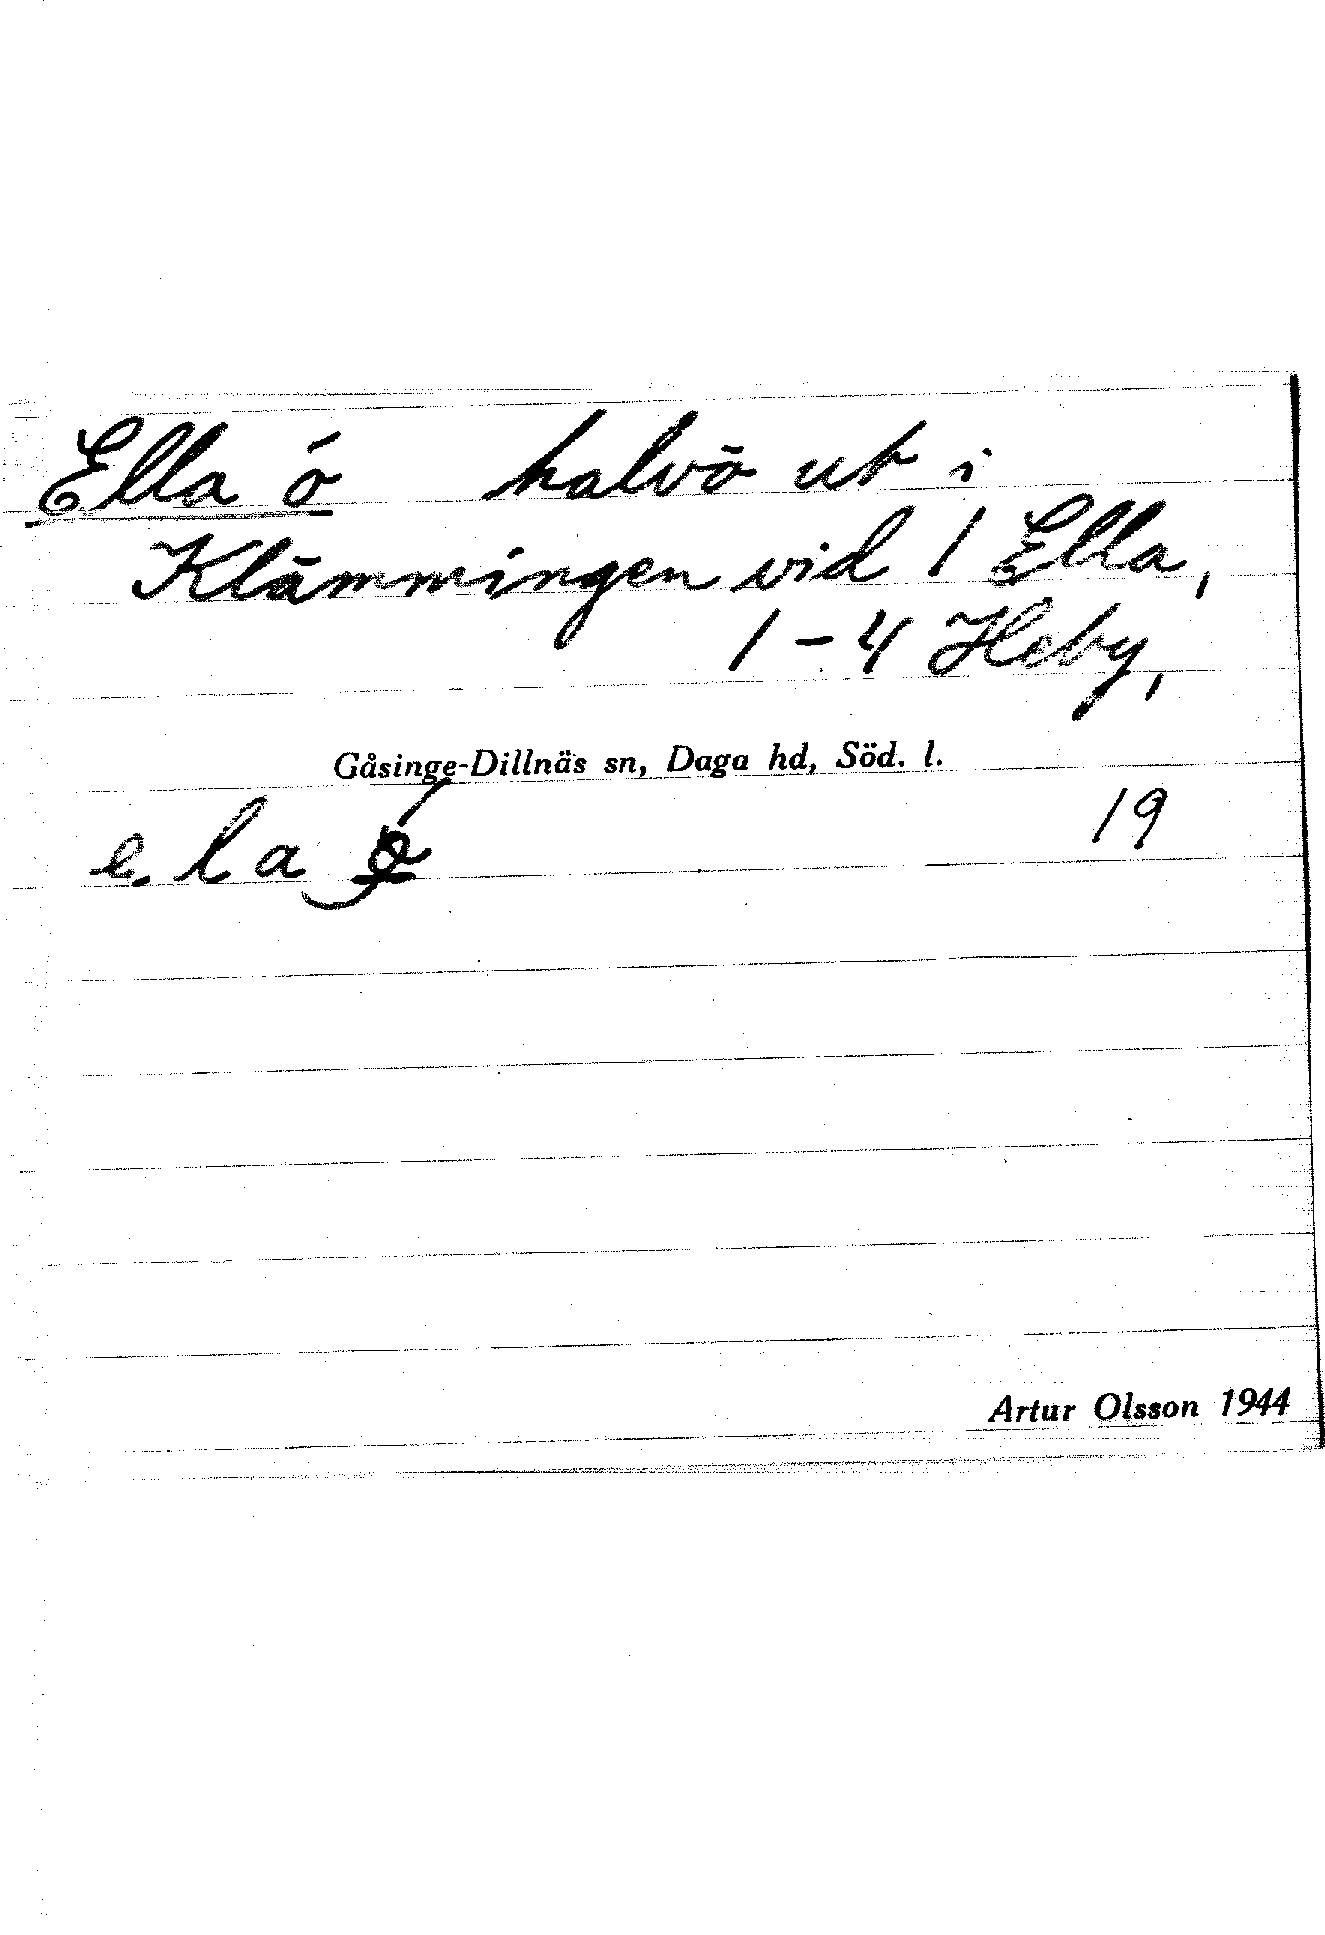 Ella ö halvö ut i
Klämmingen vid 1 Ella,
1-4 Heby,
Gåsinge-Dillnäs sn, Daga hd, Söd. l.
19
Artur Olsson 1944